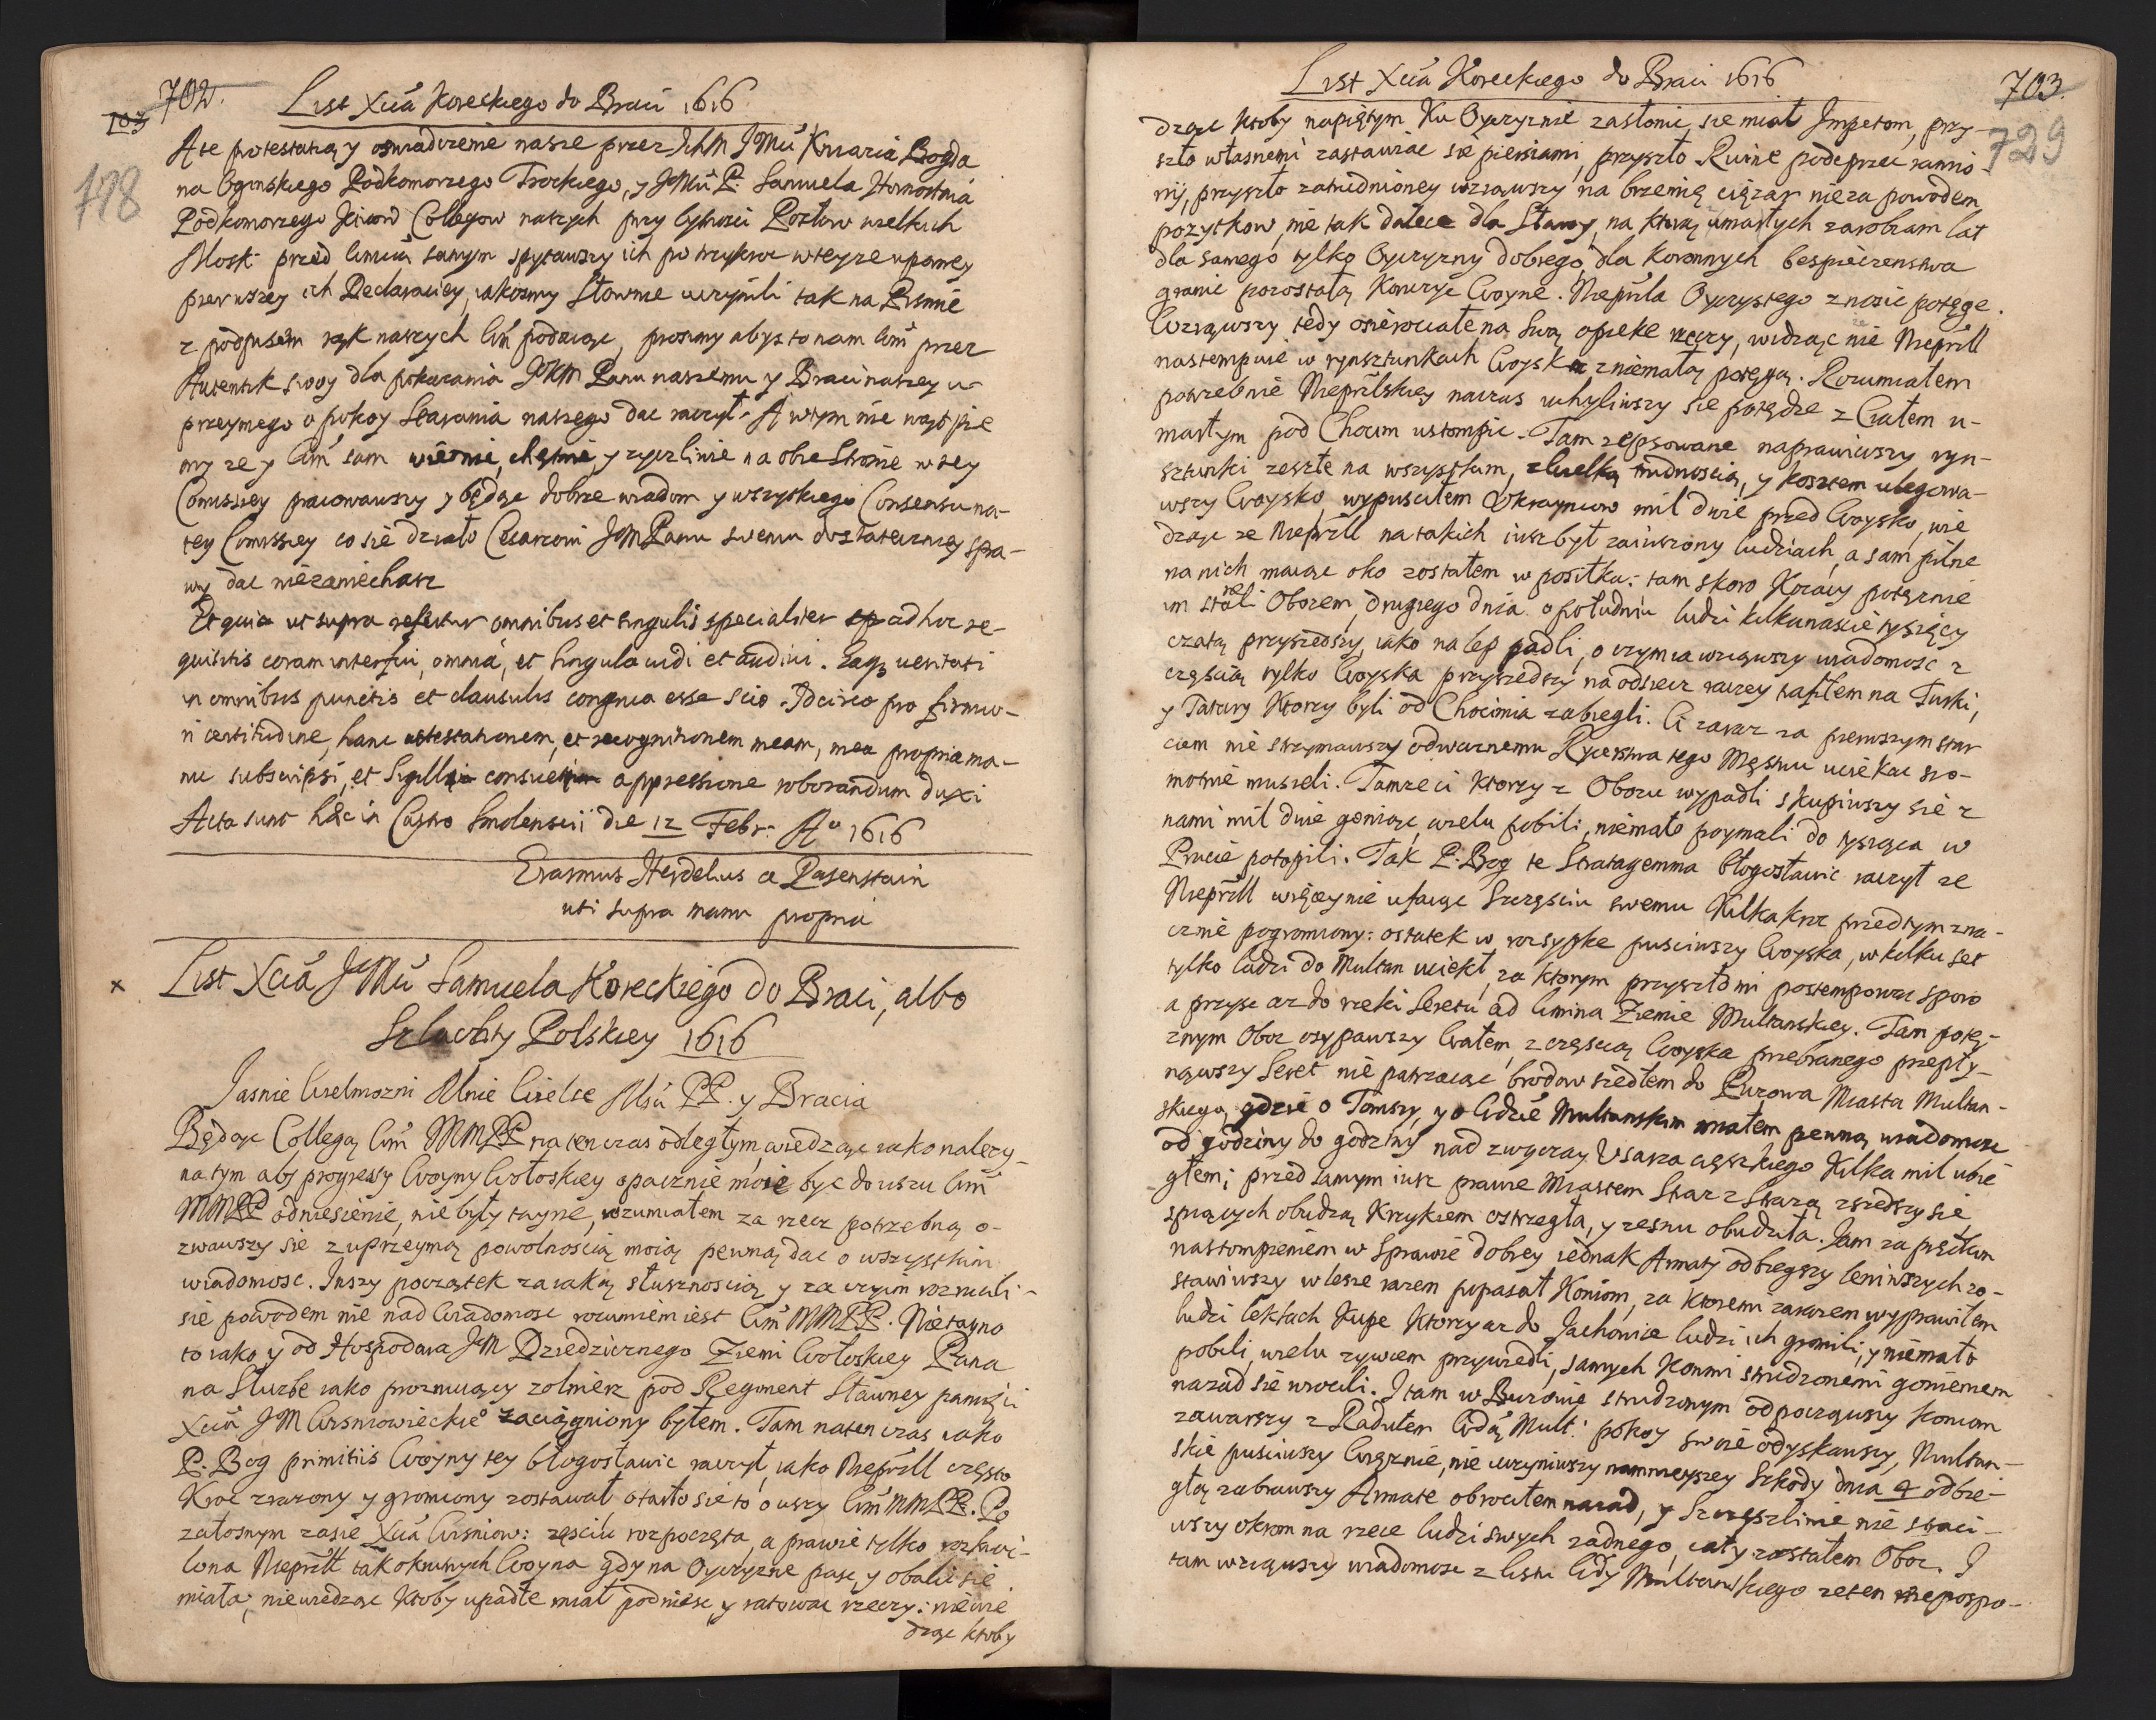 702.
103
718
List Xcia Koreckiego do Braci 1616
A te protestatią y oswiadczenie nasze przez IchM JeMci Kniazia Bogda
na Oginskiego Podkomorzego Trockiego, y JeMci P. Samuela
Podkomorzego Collegow naszych przy bytnosci Posłow wielkich
Mosk: przed samym spytawszy ich po trzykroc w teyze upornej
pierwszey ich Declaraciey, iakosmy słownie uczynili tak na Pismie
z podpisem rąk naszych podaiąc, prosimy abys to nam przez
Autentik swoy dla pokazania JKM Panu naszemu y Braci naszey u-
przeymego o pokoy starania naszego dac raczył. A w tym nie wątpie
my ze y sam wiernie, chętnie, y zyczliwie na obie stronie w tey
Comissiey pracowawszy y będąc dobrze wiadom y wszystkiego Consensu na
tey Comissiey co sie działo Cesarzowi JM Panu swemu dostateczney spra-
wy dac niezaniechasz
Et quia ut supra refertur omnibus et singulis specialiter ad hoc re-
quisitis coram interfui, omnia, et singula vidi et audivi. Eaq veritati
in omnibus punctis et clausulis congrua esse scio. Idcirco pro firmio-
ri certitudine, hanc attestationem, et recognitionem meam, mea propria ma-
nu subscripsi, et Sigilli consueti appressione roborandum duxi
Acta sunt haec in Castro Smolenscii die 12 Febr: Ao 1616
Erasmus Heydelius a Rasenstain
uti supra manu propria
x List Xcia JeMci Samuela Koreckiego do Braci, albo
Szlachty Polskiey 1616
Jasnie Wielmozni Mnie Wielce Msci PP. y Bracia
Będąc Collegą MMPP na ten czas odległym, wiedząc iako nalezy
na tym aby progressy Woyny Wołoskiey opacznie moie byc do uszu
MMPP odniesienie, nie były tayne, rozumiałem za rzecz potrzebną o-
zwawszy sie z uprzeymą powolnoscią moią pewną dac o wszystkim
wiadomosc. Inszy początek za iaką słusznoscią y za czyim
sie powodem nie nad wiadomosc rozumiem iest MMPP. Nie tayno
to iako y od Hospodara JM Dziedzicznego Ziemi Wołoskiey Pana
na Słuzbe iako prozniuiący zołnierz pod Regiment Sławney pamięci
Xcia JM Wisniowieckiego zaciągniony byłem. Tam na ten czas iako
P. Bog primitiis Woyny tey błogosławic raczył, iako Nieprzll często
Kroc zrazony y gromiony zostawał otarło sie to o uszy MMPP. Po
załosnym zasie Xcia Wisniow: zesciu rozpoczęta, a prawie tylko
lona Nieprzll tak okrutnych Woyna gdy na Oyczyzne pasc, y obalic sie
miała, niewiedząc ktoby upadłe miał podniesc, y ratowac rzeczy: niewie
dząc ktoby
List Xcia Koreckiego do Braci 1616
703.
729
dząc ktoby napiętym Ku Oyczyznie zasłonic sie miał Impetom, przy-
szło własnemi zastawiac sie piersiami, przyszło Ruine podeprzec ramio-
ny, przyszło zatrudnioney wziąwszy na brzemię cięzar nie za powodem
pozytkow, nie tak dalece dla Sławy, na ktorą umarłych zarobiam lat
dla samego tylko Oyczyzny dobrego, dla koronnych bespieczenstwa
granic pozostałą Kończyc Woyne. Nieprzla Oyczystego znosic potęge.
Wziąwszy tedy osierociałe na swą opieke rzeczy, widząc nie Nieprzll
nastempuie w rynsztunkach Woyska z niemałą potęgą. Rozumiałem
potrzebnie Nieprzllskiey naczas uchyliwszy sie potędze z Ciałem u-
marłym pod Chocim ustompic. Tam zepsowane naprawiwszy ryn-
sztunki zeszłe na wszystkim, z wielką trudnoscią, y kosztem ulegowa-
wszy Woysko, wypusciłem Ukraynców mil dwie przed Woysko, wie
dząc ze Nieprzll na takich iusz był zaiuszony ludziach, a sam pilne
na nich maiąc oko zostałem w posiłku: tam skoro Kozacy potęznie
im stanęli Obozem, drugiego dnia o południu ludzi kilkanascie tysięcy
czatą przyszedszy, iako na lep padli, o czym ia wziąwszy wiadomosc z
częscią tylko Woyska przyszedszy na odsiecz raczey trafiłem na Turki,
y Tatary Ktorzy byli od Chocimia zabiegli. A zaraz za pierwszym star
ciem nie strzymawszy odwaznemu Rycerstwa tego Męstwu uciekac sro-
motnie musieli. Tamze ci Ktorzy z Obozu wypadli skupiwszy sie z
nami mil dwie goniąc, wielu pobili, niemało poymali do tysiąca w
Prucie potopili. Tak P. Bog te Stratagemma błogosławic raczył ze
Nieprzll więcey nie ufaiąc Szczęsciu swemu Kilkakroc przedtym zna-
cznie pogromiony: ostatek w rozsypke pusciwszy Woyska, w kilku set
tylko ludzi do Multan uciekł, za Ktorym przyszło mi postempowac sporo
a przysc az do rzeki Seretu ad limina Ziemie Multanskiey. Tam potę-
znym Oboz osypawszy wałem, z częscią Woyska przebranego przepły-
nąwszy Seret nie patrzaiąc brodow szedłem do Buzowa Miasta Multan-
skiego, gdzie o Tomszy, y o Wdzie Multanskim miałem pewną wiadomosc
od godziny do godziny nad zwyczay Usarza cięszkiego Kilka mil ubie
głem; przed samym iusz prawie Miastem Straz z Strazą zszedszy sie
spiących obudzą Krzykiem ostrzegła, y ze snu obudziła. Jam za
nastompieniem w sprawie dobrey iednak Armaty odbiegszy leniwszych zo-
stawiwszy w lesie razem popasał Koniom, za Ktoremi zarazem wyprawiłem
ludzi lekkich Kupe Ktorzy az do Jachowice ludzi ich gromili, y niemało
pobili, wielu zywcem przywiedli, samych Konmi strudzonemi gonieniem
nazad sie wrocili. I tam w Buzowie strudzonym odpocząwszy koniom
zawarszy z Radułem Wdą Mult: pokoy swoie odyskawszy, Multan-
skie pusciwszy Więznie, nie uczyniwszy namnieyszey Szkody dnia 4 odbie-
głą zabrawszy Armate obrociłem nazad, y Szczęsliwie nie straci-
wszy okrom na rzece ludzi swych zadnego, cały zastałem Oboz. I
tam wziąwszy wiadomosc z listu Wdy Multanskiego ze ten niepospo-